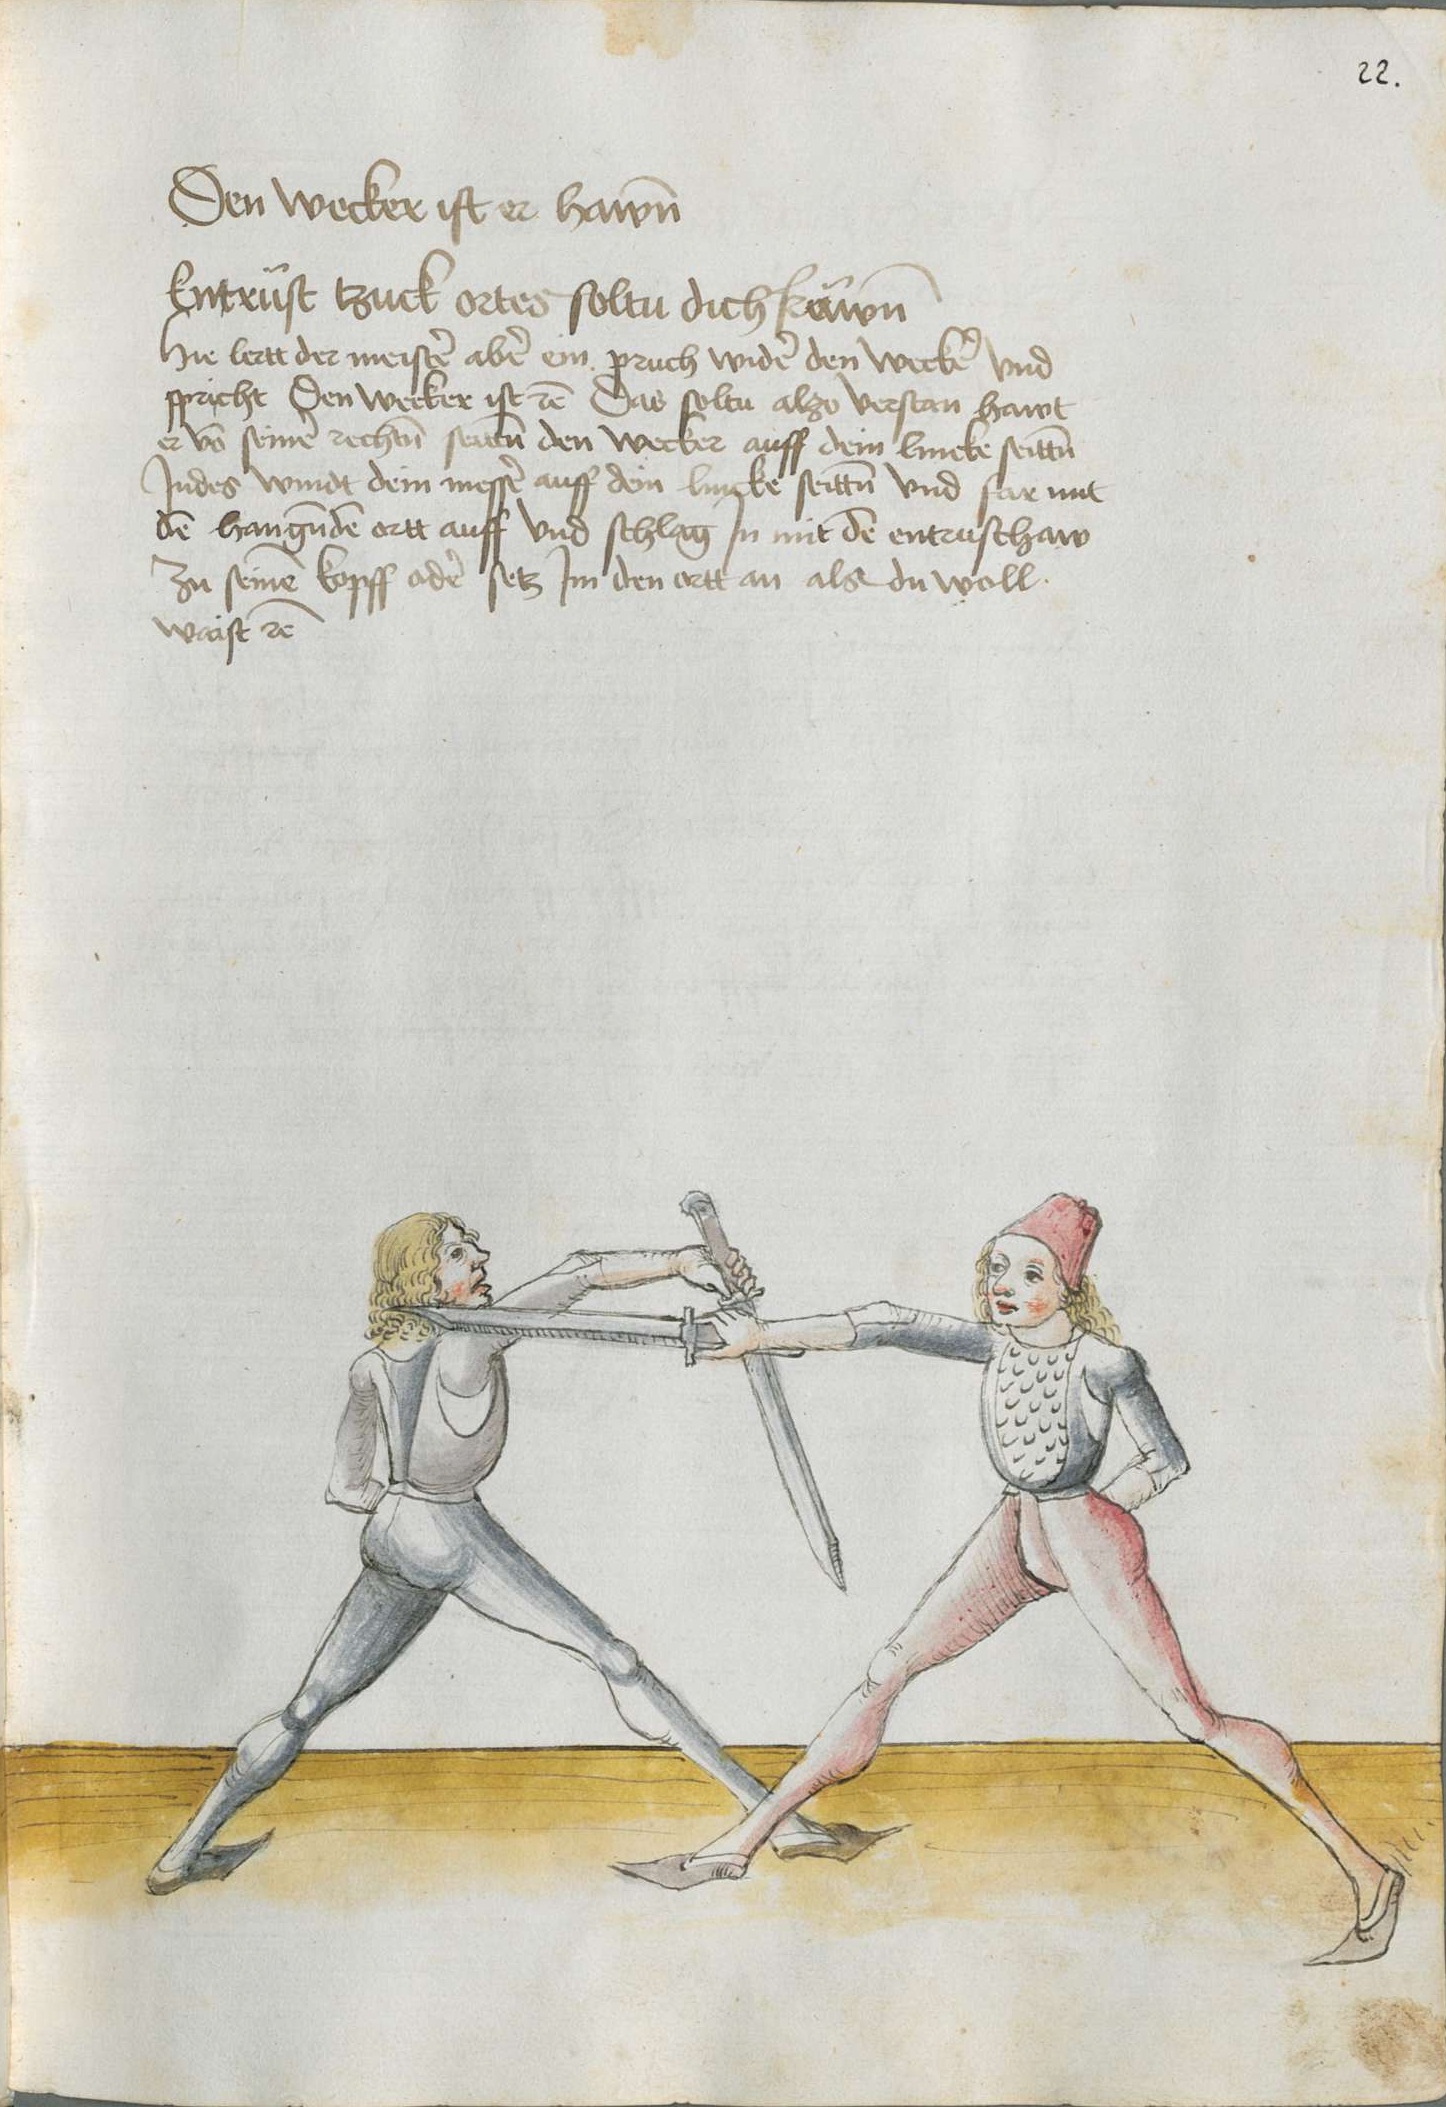 22.
Den wecker ist er hawn̄
Entrüst tzuck ortes soltu dich fräwn̄
Hie lertt der meistẽ abẽ ein pruch widẽ den weckẽ vnd
spricht Den wecker ist rē Das soltu alzo verstan hawt
er vō seinẽ rechtn̄ seittn̄ den wecker auff dein lincke seittn̄
Indes windt dein messẽ auff dein lincke seittn̄ vnd far mit
dē hangn̄dē ortt auff vnd schlag In mit dē entrusthaw
Zu seinē kopff odẽ setz Im den ortt an als du woll
waist rē